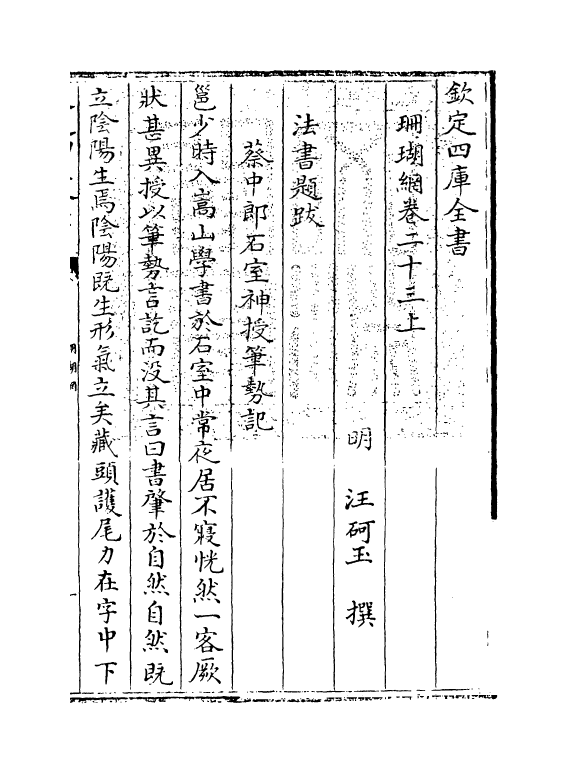 欽定四庫全書
珊瑚網卷二十三上
明　汪砢玉　撰
法書題跋
蔡中郎石室神授筆勢記
邕少時入嵩山學書於石室中常夜居不寢恍然一客厥
狀甚異授以筆勢言訖而没其言曰書肇於自然自然既
立陰陽生焉陰陽既生形氣立矣藏頭護尾力在字中下